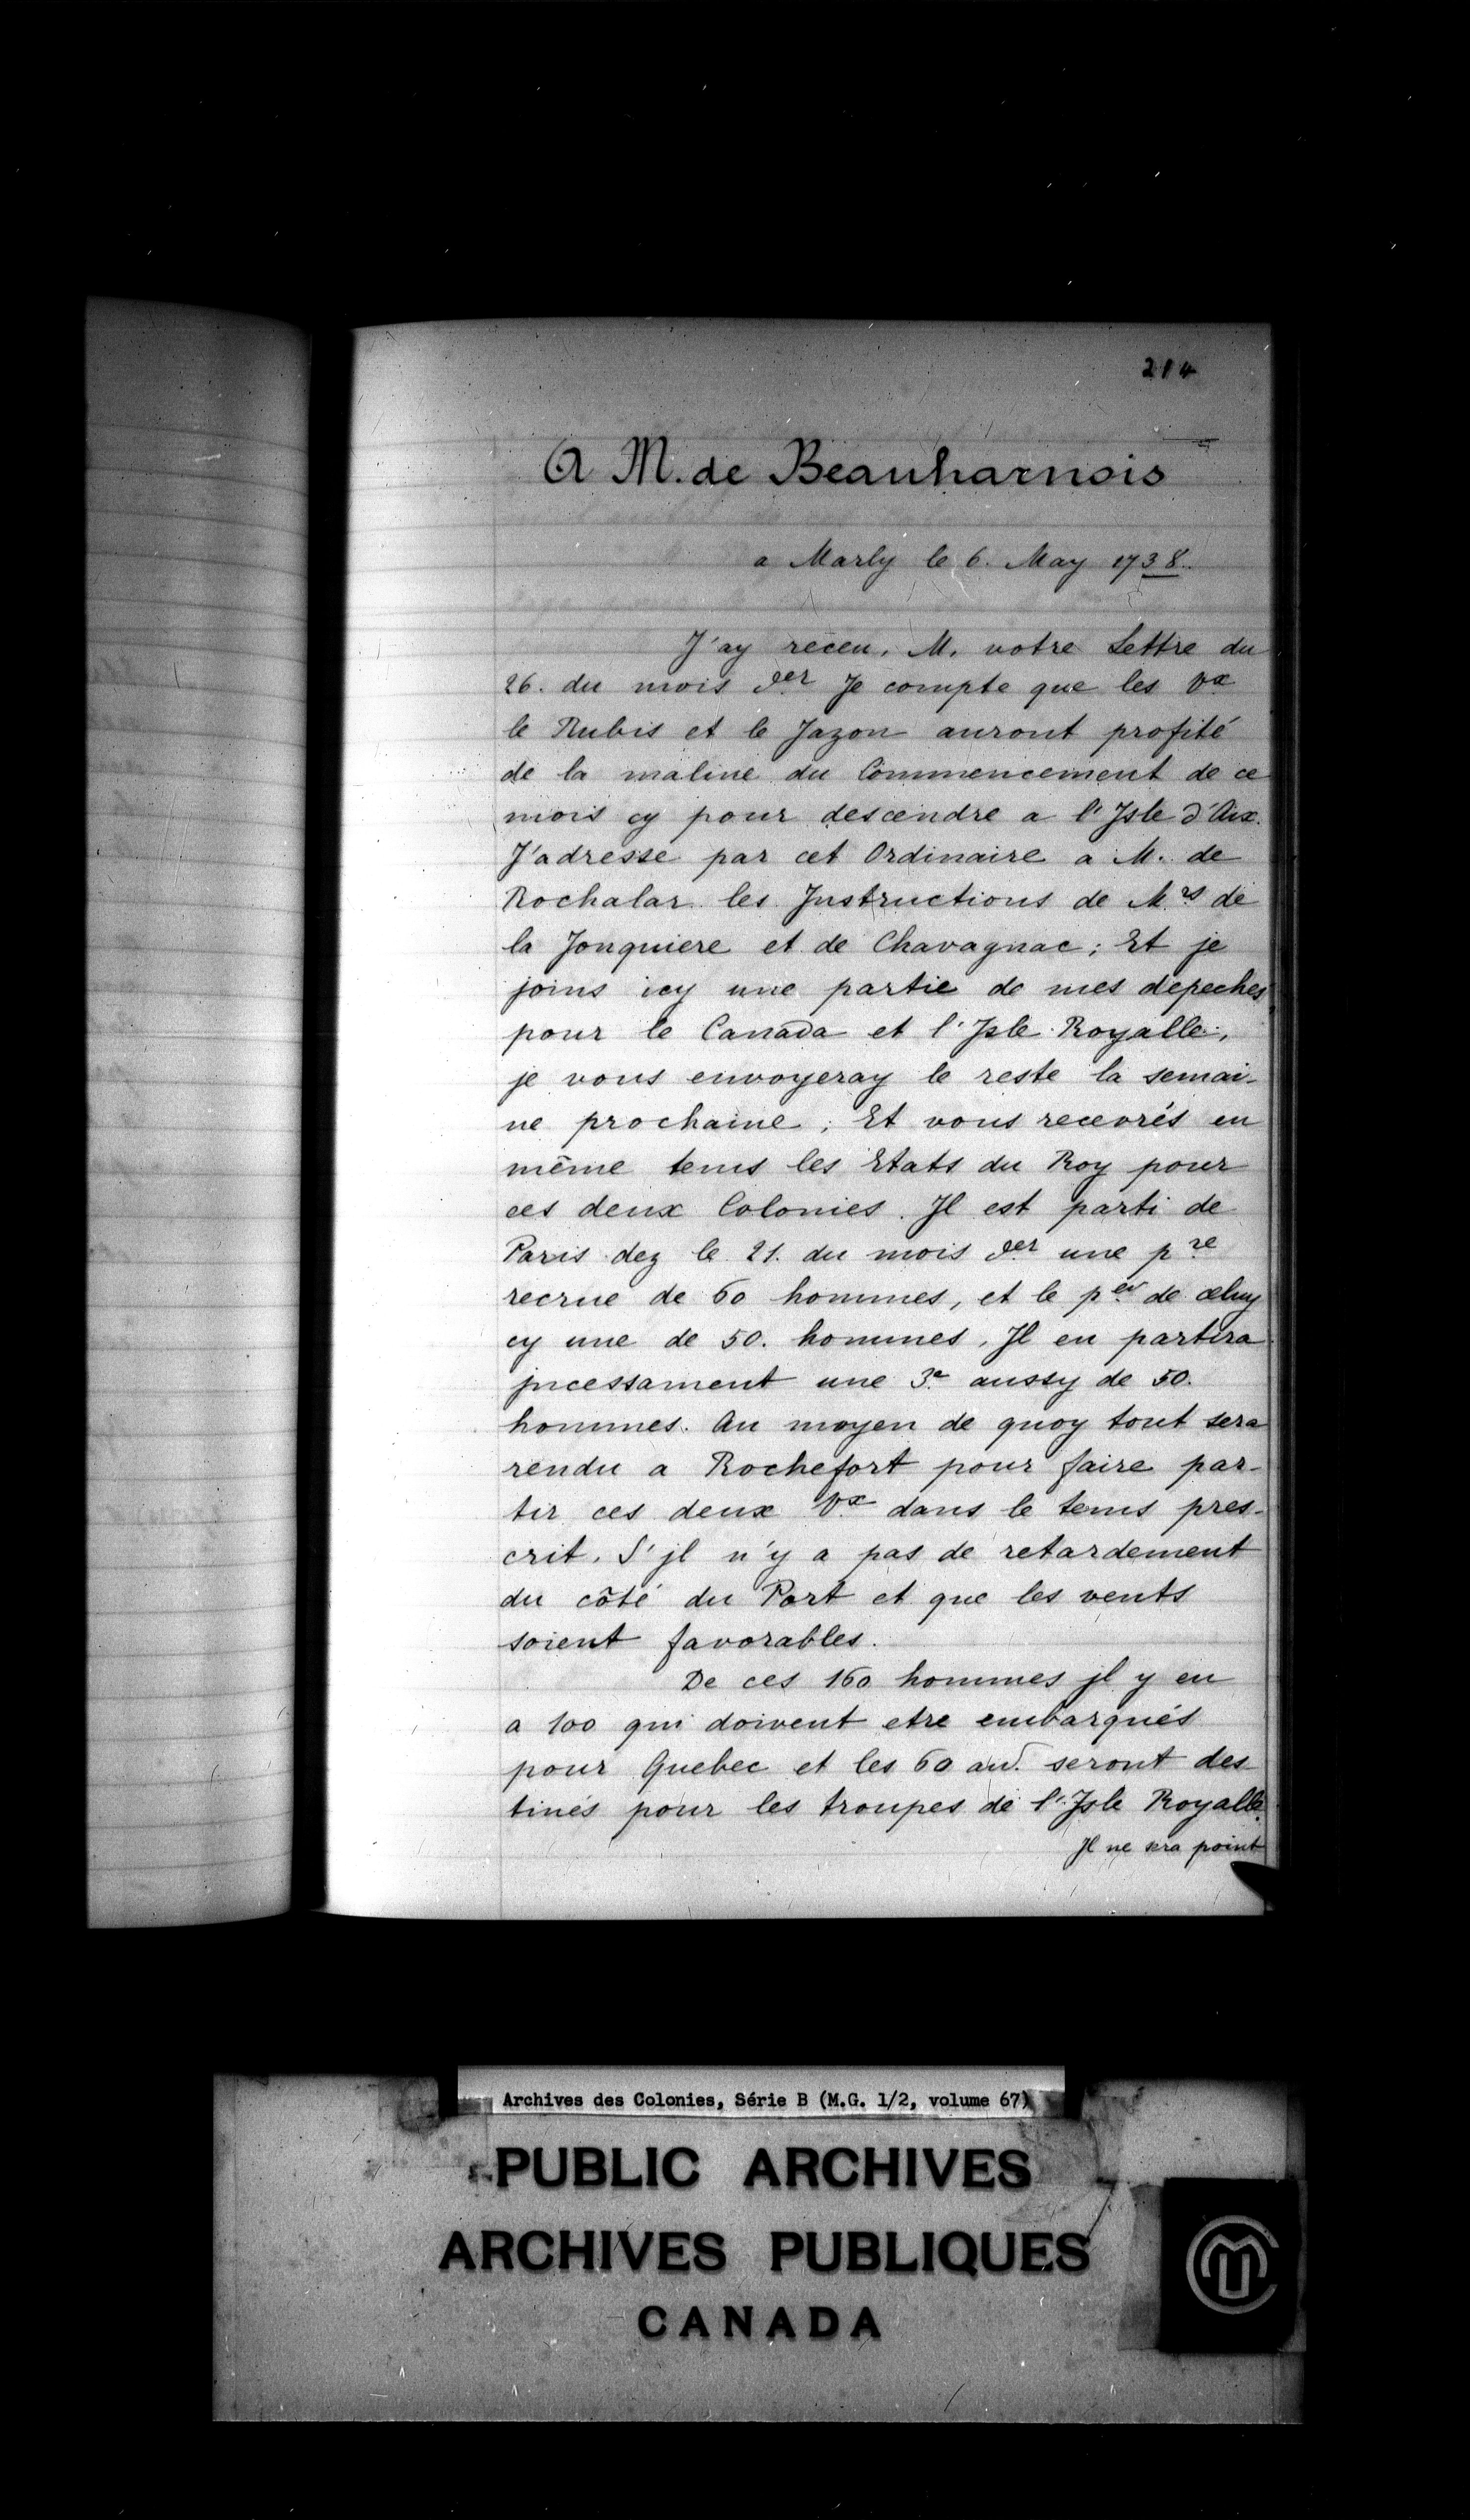 214
A M. de Beauharnois
a Marly le 6. May 1738.
J'ay receu, M. votre Lettre du
26. du mois der Je compte que les Vx
le Rubis et le Jazon auront profité
de la maline du Commencement de ce
mois cy pour descendre a l'Jsle d'Aix.
J'adresse par cet Ordinaire a M. de
Rochalar les Jnstructions de Mrs de
la Jonquiere et de Chavagnac; Et je
joins icy une partie de mes depeches
pour le Canada et l'Jsle Royalle,
je vous envoyeray le reste la semai-
ne prochaine; Et vous recevrés en
même tems les Etats du Roy pour
ces deux Colonies. Jl est parti de
Paris dez le 21. du mois der une pre
recrue de 60 hommes, et le per de celuy
cy une de 50. hommes, Jl en partira
jncessament une 3e aussy de 50.
hommes. Au moyen de quoy tout sera
rendu a Rochefort pour faire par-
tir ces deux Vx dans le tems pres-
crit, S'jl n'y a pas de retardement
du côté du Port et que les vents
soient favorables.
De ces 160 hommes jl y en
a 100 qui doivent etre embarqués
pour Quebec et les 60 au. seront des-
tinés pour les troupes de l'Jsle Royalle.
Jl ne sera point
Archives des Colonies, Série B (M.G. 1/2, volume 67)
PUBLIC ARCHIVES
ARCHIVES PUBLIQUES
CANADA